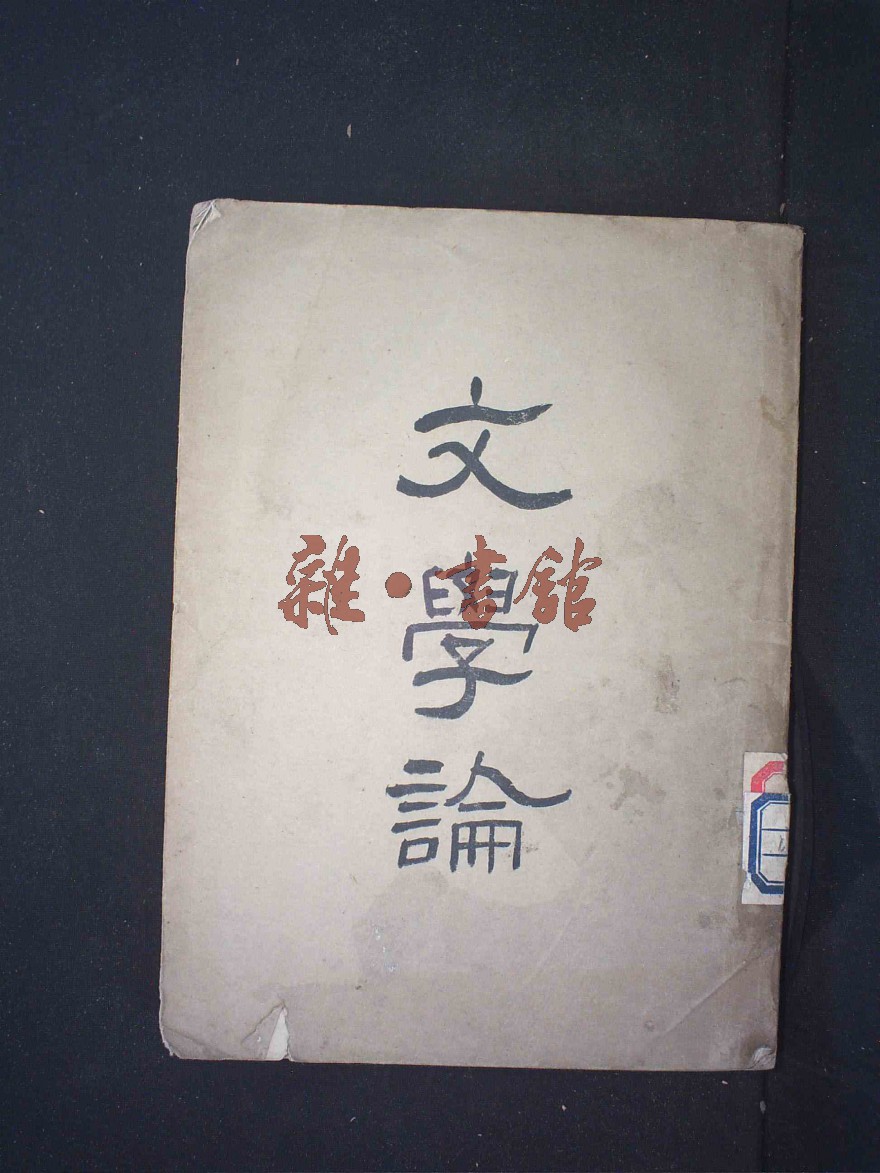 文學論
雜·書館